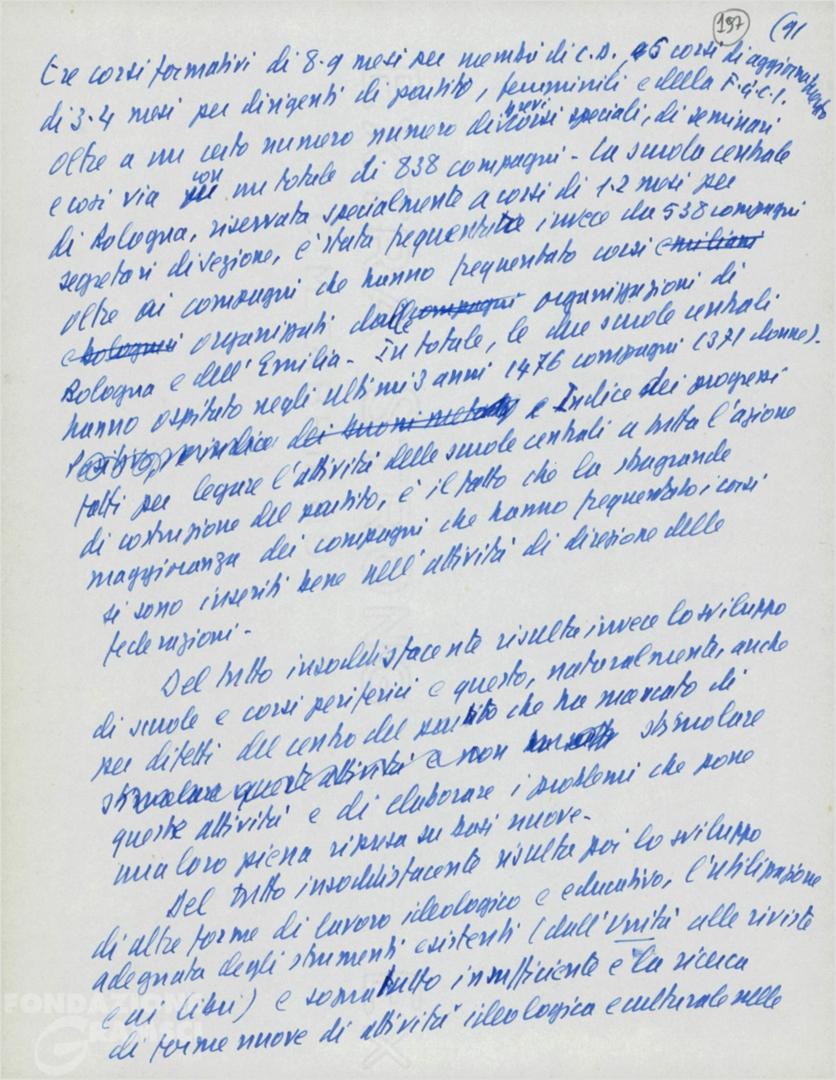 197 (91
tre corsi formativi di 8-9 mesi per membri di c.d., 6 corsi di aggiornamento
di 3-4 mesi per dirigenti di partito, femminili, e della F.G.C.I.
oltre a un certo numero numero di brevi corsi speciali, di seminari
e così via con un totale di 838 compagni - La scuola centrale
di Bologna, riservata specialmente a corsi di 1-2 mesi per
segretari di sezione, è stata frequentata invece da 538 compagni
oltre ai compagni che hanno frequentato corsi emiliani
e bolognesi organizzati dalle compagni organizzazioni di
Bologna e dell'Emilia - In totale, le due scuole centrali
hanno ospitato negli ultimi 3 anni 1476 compagni (371 donne).
Positivo, indice dei buoni metodi e Indice dei progressi
fatti per legare l'attività delle scuole centrali a tutta l'azione
di costruzione del partito, è il fatto che la stragrande
maggioranza dei compagni che hanno frequentato i corsi
si sono inseriti bene nell'attività di direzione delle
federazioni -
Del tutto insoddisfacente risulta invece lo sviluppo
di scuole e corsi periferici e questo, naturalmente, anche
per difetti del centro del partito che ha mancato di
stimolare queste attività e non stimolare
queste attività e di elaborare i problemi che pone
una loro piena ripresa su basi nuove -
Del tutto insoddisfacente risulta poi lo sviluppo
di altre forme di lavoro ideologico e educativo, l'utilizzazione
adeguata degli strumenti esistenti (dall'Unità alle riviste
e ai libri) e soprattutto insufficiente è la ricerca
di forme nuove di attività ideologica e culturale nelle
FONDAZIONE
GRAMSCI